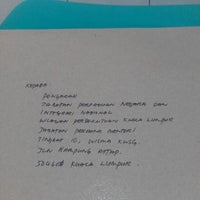 KEPADA :
PENGARAH
JABATAN PERPADUAN NEGARA DAN
INTEGRASI NASIONAL
WILAYAH PERSEKUTUAN KUALA LUMPUR
JABATAN PERDANA MENTERI
TINGKAT 10, WISMA KUSG,
JLN KAMPUNG ATTAP.
KUALA LUMPUR.